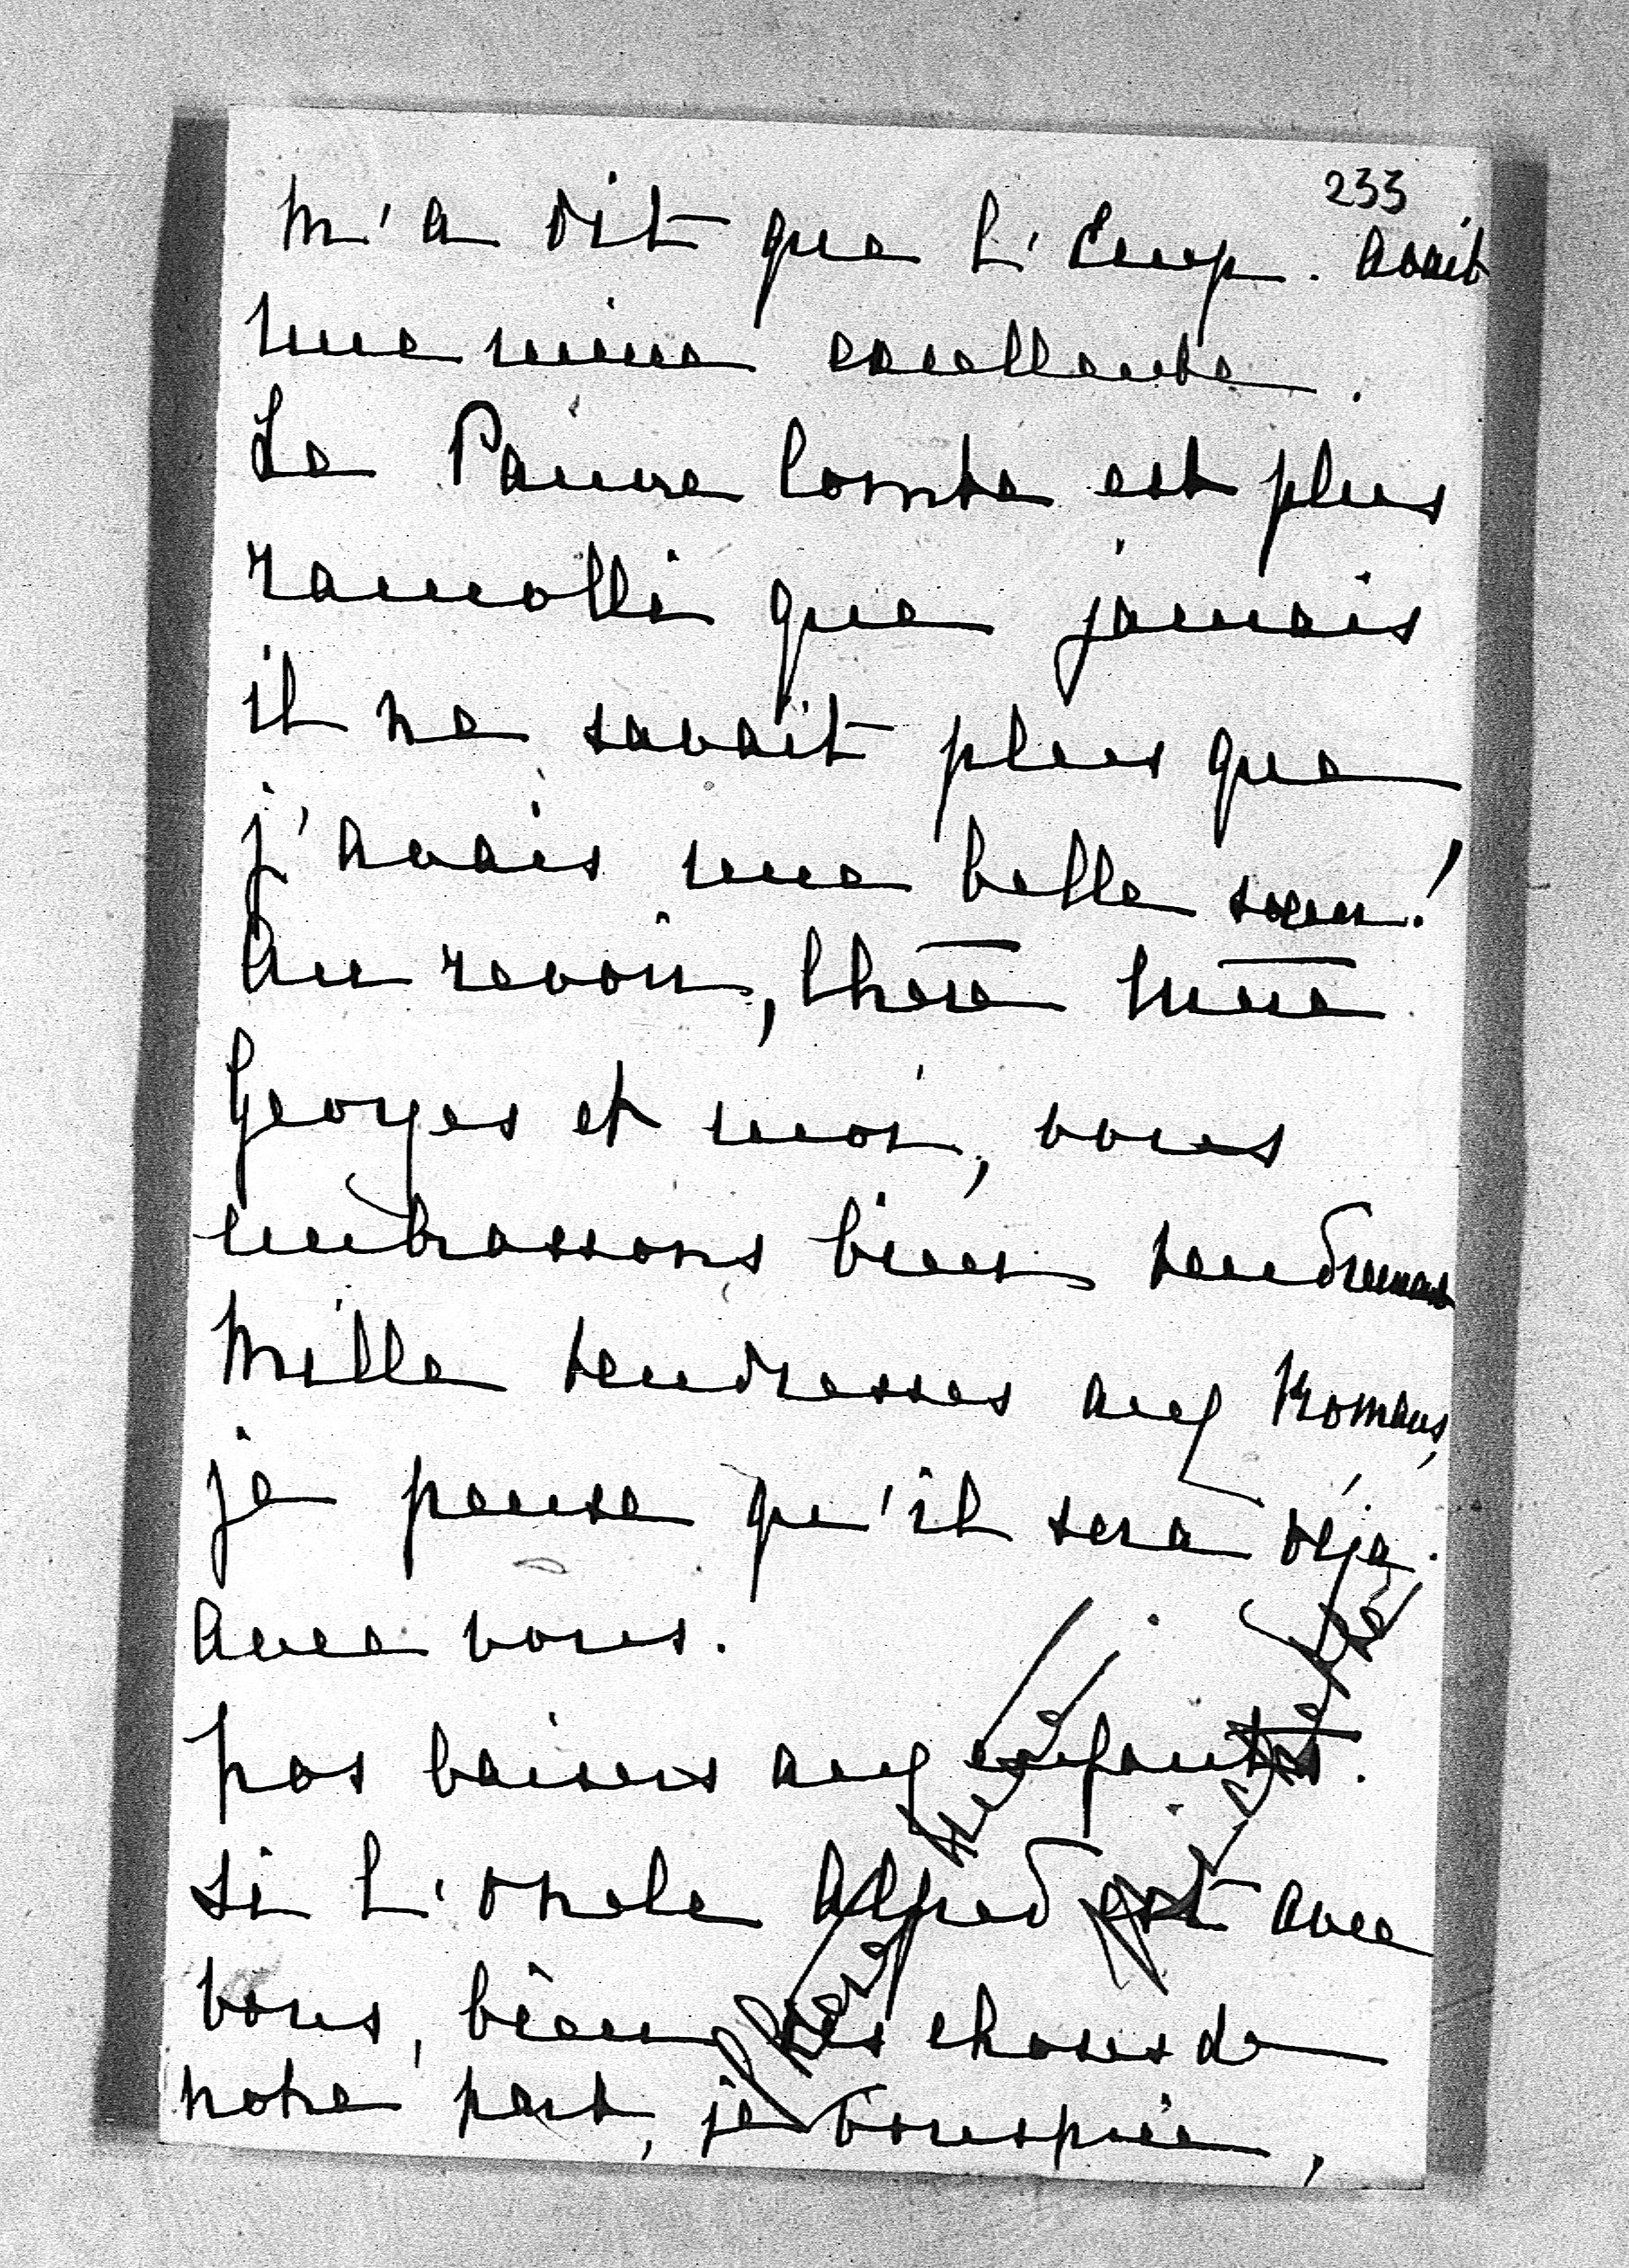 233
m'a dit que L'Emp. avait
une mine excellente.
Le Pauvre Comte est plus
ramolli que jamais
il ne savait plus que
j'avais une belle sœur!
Au revoir, Chère Mère
Georges et moi, vous
embrassons bien tendrement
Mille tendresses aux Romans,
je pense qu'il sera déja
avec vous.
Nos baisers aux enfants.
Si L'oncle Alfred est avec
vous, bien des choses de
notre part, je vous prie,